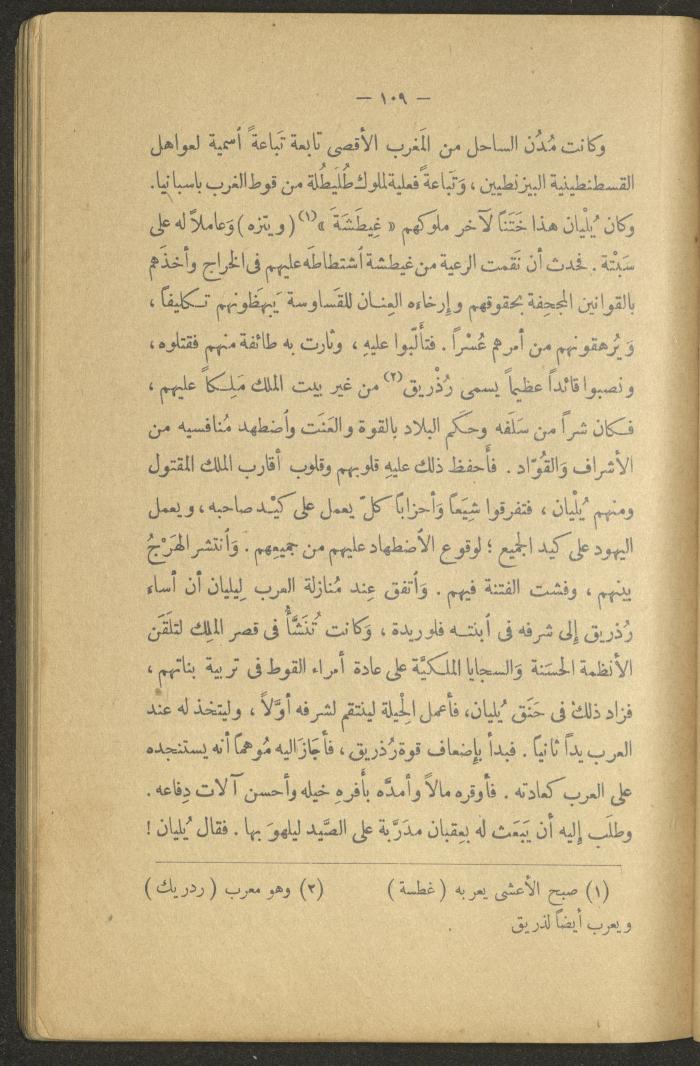 — ١٠٩ —
وكانت مُدُن الساحل من المَغرب الأقصى تابعة تَباعةً أسمية لعواهل
القسطنطينية البيزنطيين ، وَتَباعةً فعلية لملوك طُلَيطُلة من قوط الغرب باسبانيا.
وكان يُلْيان هذا خَتَناً لآخر ملوكهم « غِيطَشَةَ »(١) ( ويتزه ) وَعاملاً له على
سَبْتَة . فحدث أن نَقمت الرعية من غيطشة أشتطاطَه عليهم فى الخراج وأخذَهم
بالقوانين المجحفة بحقوقهم وإِرخاءه العِنان للقَساوسة يَبهَظونهم تكليفاً ،
وَيُرهقونهم من أمرهم عُسْراً . فتألّبوا عليهِ ، وثارت به طائفة منهم فقتلوه ،
ونصبوا قائداً عظيماً يسمى رُذْريق(٢) من غير بيت الملك مَلِكاً عليهم ،
فكان شراً من سَلَفه وحكَم البلاد بالقوة والعَنَت وأضطهد مُنافسيه من
الأشراف وَالقُوّاد . فأَحفظ ذلك عليهِ قلوبهم وقلوب أقارب الملك المقتول
ومنهم يُلْيان ، فتفرقوا شِيَعاً وَأحزاباً كلّ يعمل على كيْد صاحبه ، ويعمل
اليهود على كيد الجميع ؛ لوقوع الأضطهاد عليهم من جميعِهم . وَأنتشر الهَرْجُ
بينهم ، وفشت الفتنة فيهم . وَأتفق عِند مُنازلة العرب لِيليان أن أساء
رُذْريق إِلى شرفه فى أبنته فلوريدة ، وَكانت تُنَشَّأُ فى قصر المِلك لتلقَن
الأنظمة الحسَنة وَالسجايا الملكيَّة على عادة أمراء القوط فى تربية بناتهم ،
فزاد ذلكَ فى حَنَق يُليان، فأعمل الْحِيلة لينتقم لشرفه أوَّلاً ، وليتخذ له عند
العرب يداً ثانياً . فبدأ بِإِضعاف قوة رُذريق ، فأَجَازَ اليه مُوهماً أنه يستنجده
على العرب كعادته . فأوقره مالاً وأمدَّه بأَفرهِ خيله وأحسن آلات دِفاعه .
وطلَب إليه أن يَبَعَث له بعِقبان مدَرَّبة على الصَّيد ليلهوَ بها . فقال يُليان !
(١) صبح الأعشى يعربه ( غطسة ) (٢) وهو معرب ( ردريك )
ويعرب أيضاً لذريق